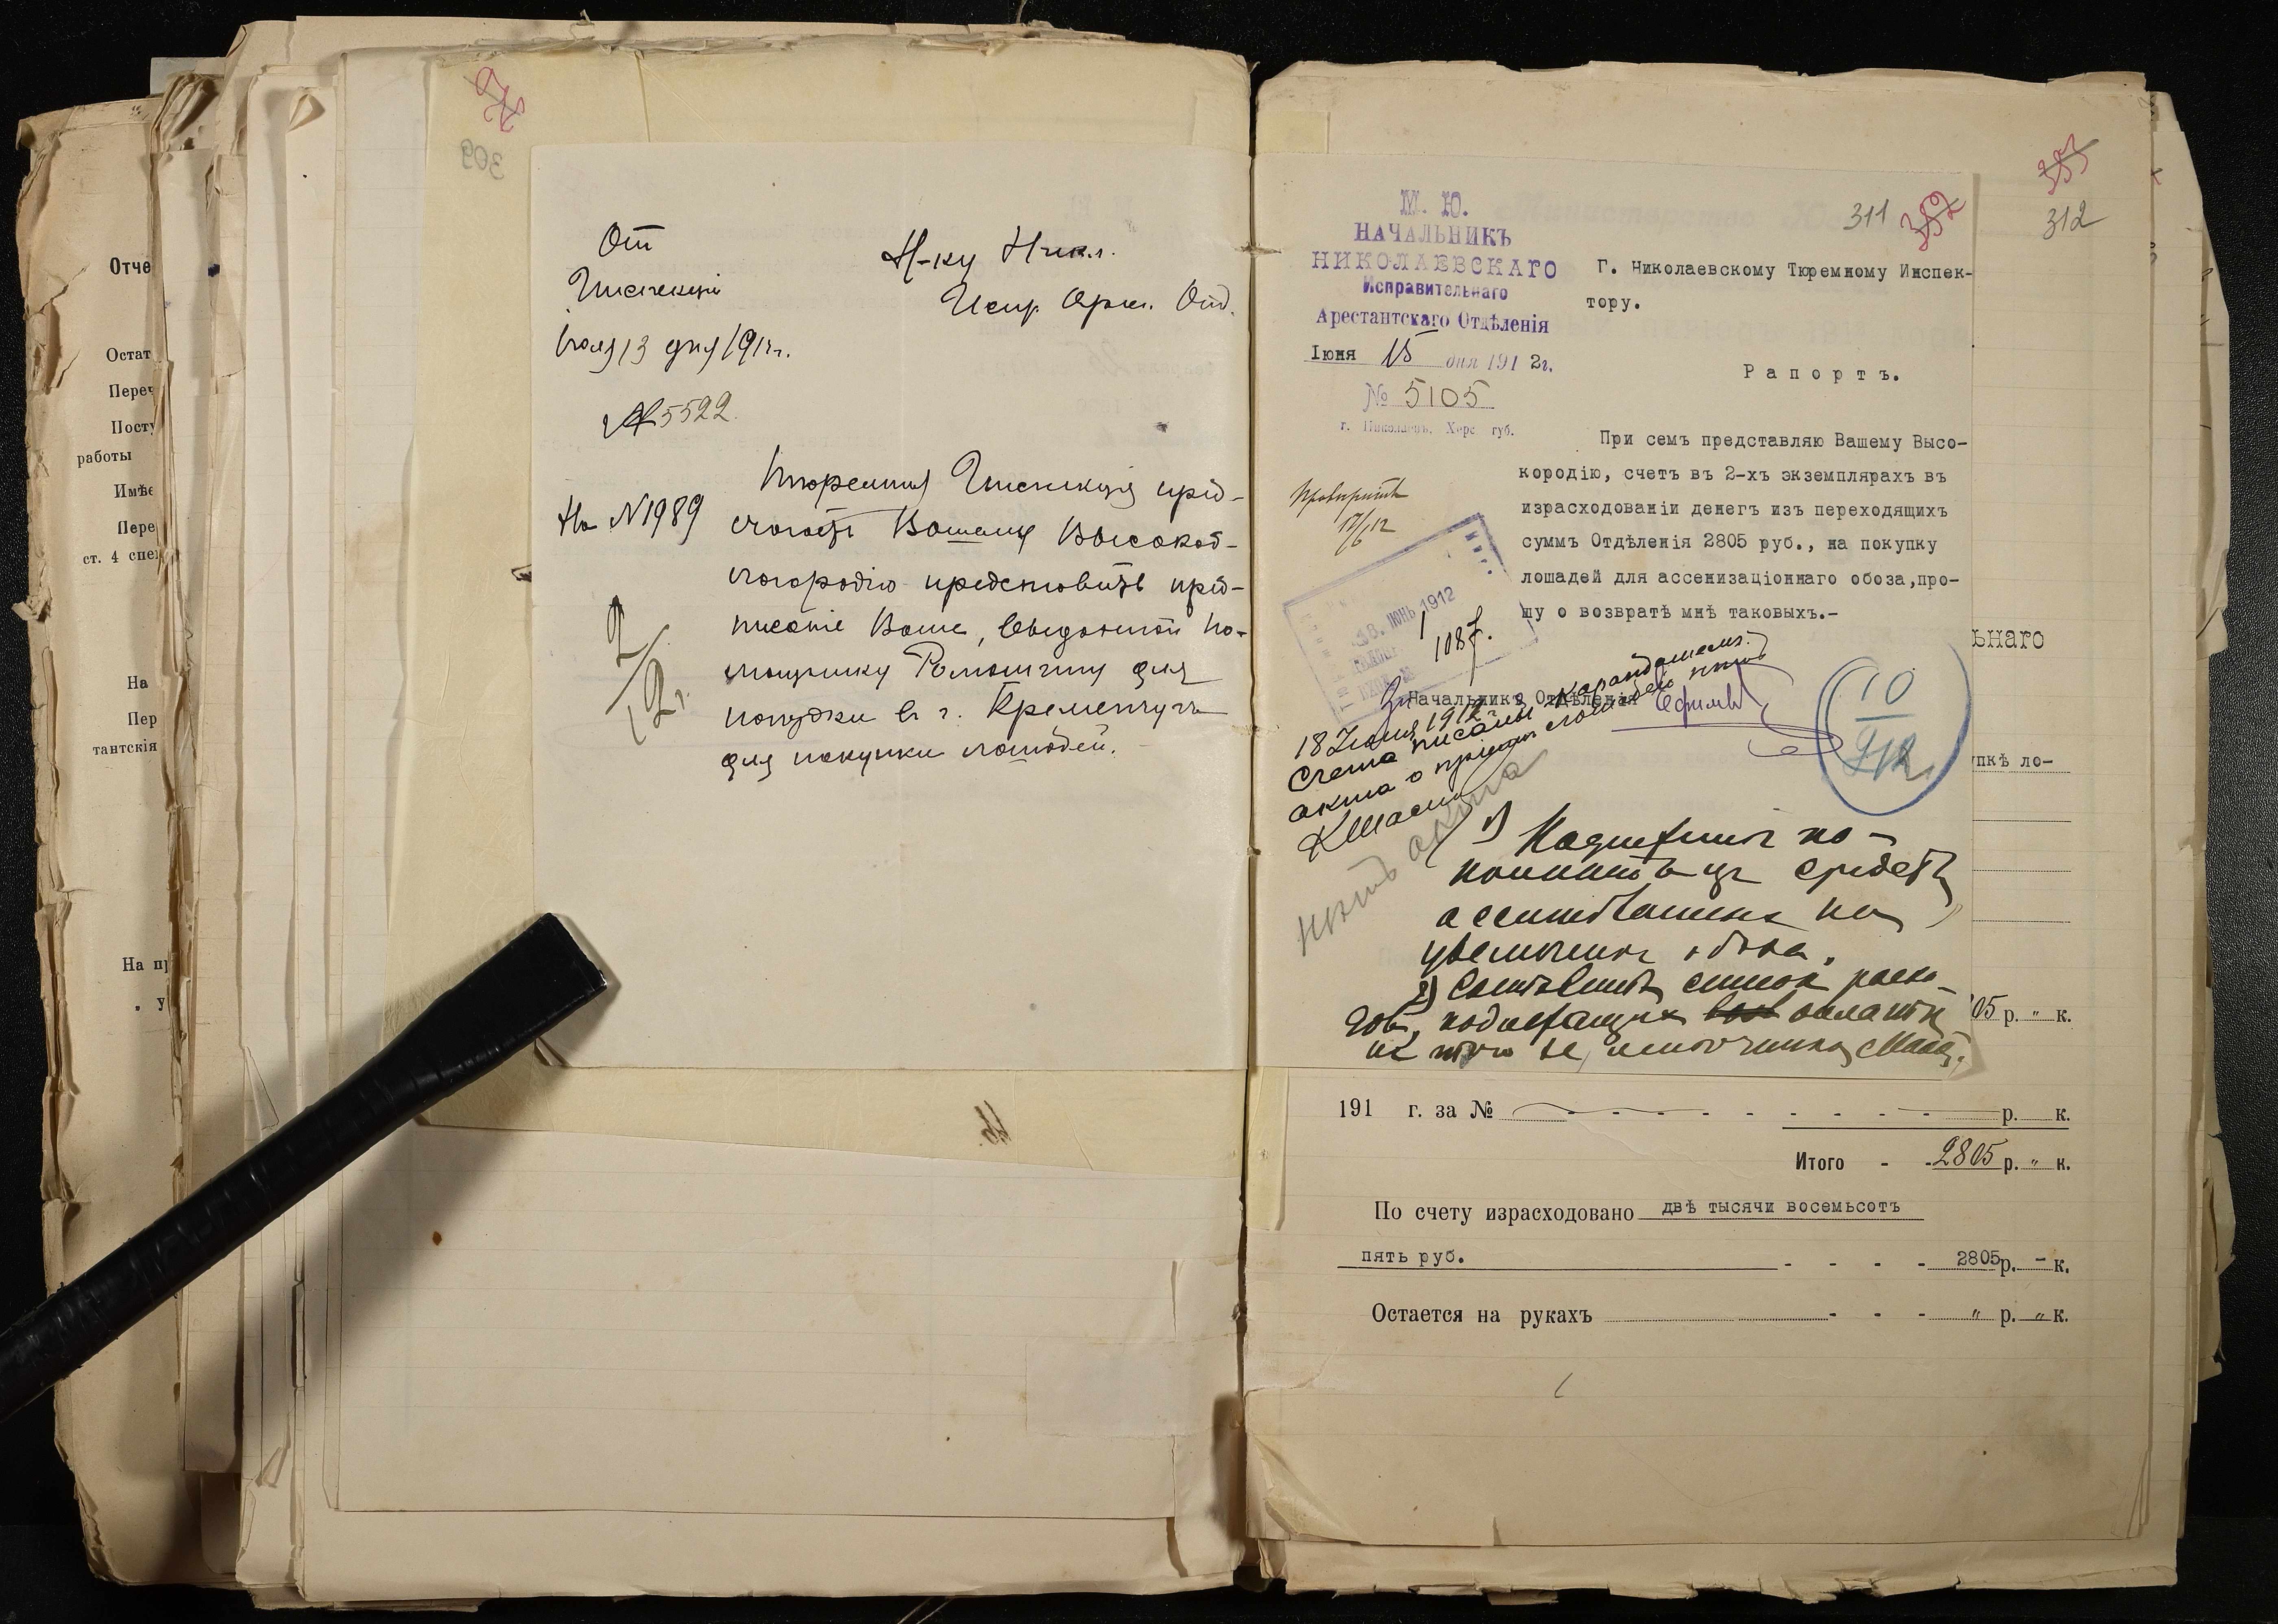 Отче
Остат
Переч
Посту
работы
Имѣе
Пере
ст. 4 спе
На
Пер
тантскія
На пр
309
От
Инспекціи
Іюля 13 дня 1912 г.
№ 5522
Н-ку Ник.
Испр. Арест. Отд.
На № 1989
Тюремная Инспекція пред-
лагаетъ Вашему Высокоб-
лагородію представить пред-
писаніе Ваше, выданное по-
мощнику Ромашину для
поѣздки въ г. Кременчугъ
для покупки лошадей.
М. Ю.
НАЧАЛЬНИКЪ
НИКОЛАЕВСКАГО
Исправительнаго
Арестантскаго Отдѣленія
Іюня 15 дня 1912г.
№ 5105
г. Николаевъ, Херс. губ.
311
352
353
312
Г. Николаевскому Тюремному Инспек-
тору.
Рапортъ.
При семъ представляю Вашему Высо-
кородію, счетъ въ 2-хъ экземплярахъ въ
израсходованіи денегъ изъ переходящихъ
суммъ Отдѣленія 2805 руб., на покупку
лошадей для ассенизаціоннаго обоза,про-
шу о возвратѣ мнѣ таковыхъ.-
Провѣрить
18. ІЮНЬ 1912
1087.
Начальникъ Отдѣленія
18 Іюня 1912
Счета писаны карандашемъ.
акта о пріемѣ лошадей нѣтъ
нѣтъ акта
10
1) Надлежитъ по-
полнить изъ средствъ
ассигнованныхъ на
увеличеніе обоза.
2) Составить списокъ расхо-
довъ, подлежащихъ оплатѣ
изъ того же
ьнаго
пкѣ ло-
05 р. „ к.
191 г. за № р. к.
Итого - - 2805 р. „ к.
По счету израсходовано двѣ тысячи восемьсотъ
пять руб. - - - - 2805р. - к.
Остается на рукахъ - - - „ р. „ к.